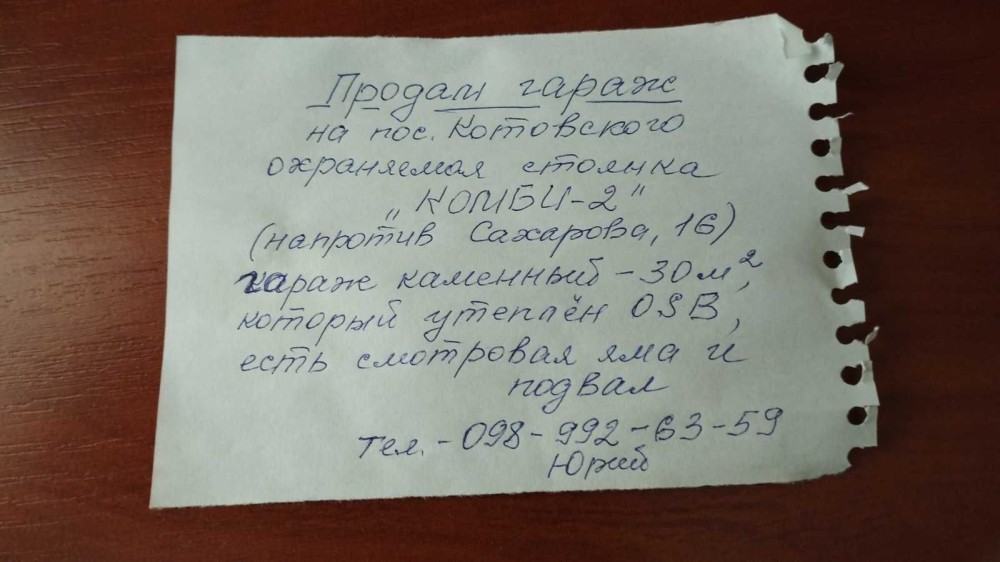 Продам гараж
на пос. Котовского
охраняемая стоянка
„КОМБИ-2"
(напротив Сахарова, 16)
гараж каменный - 30 м²,
который утеплён OSB,
есть смотровая яма и
подвал
тел. - 098-992-63-59
Юрий